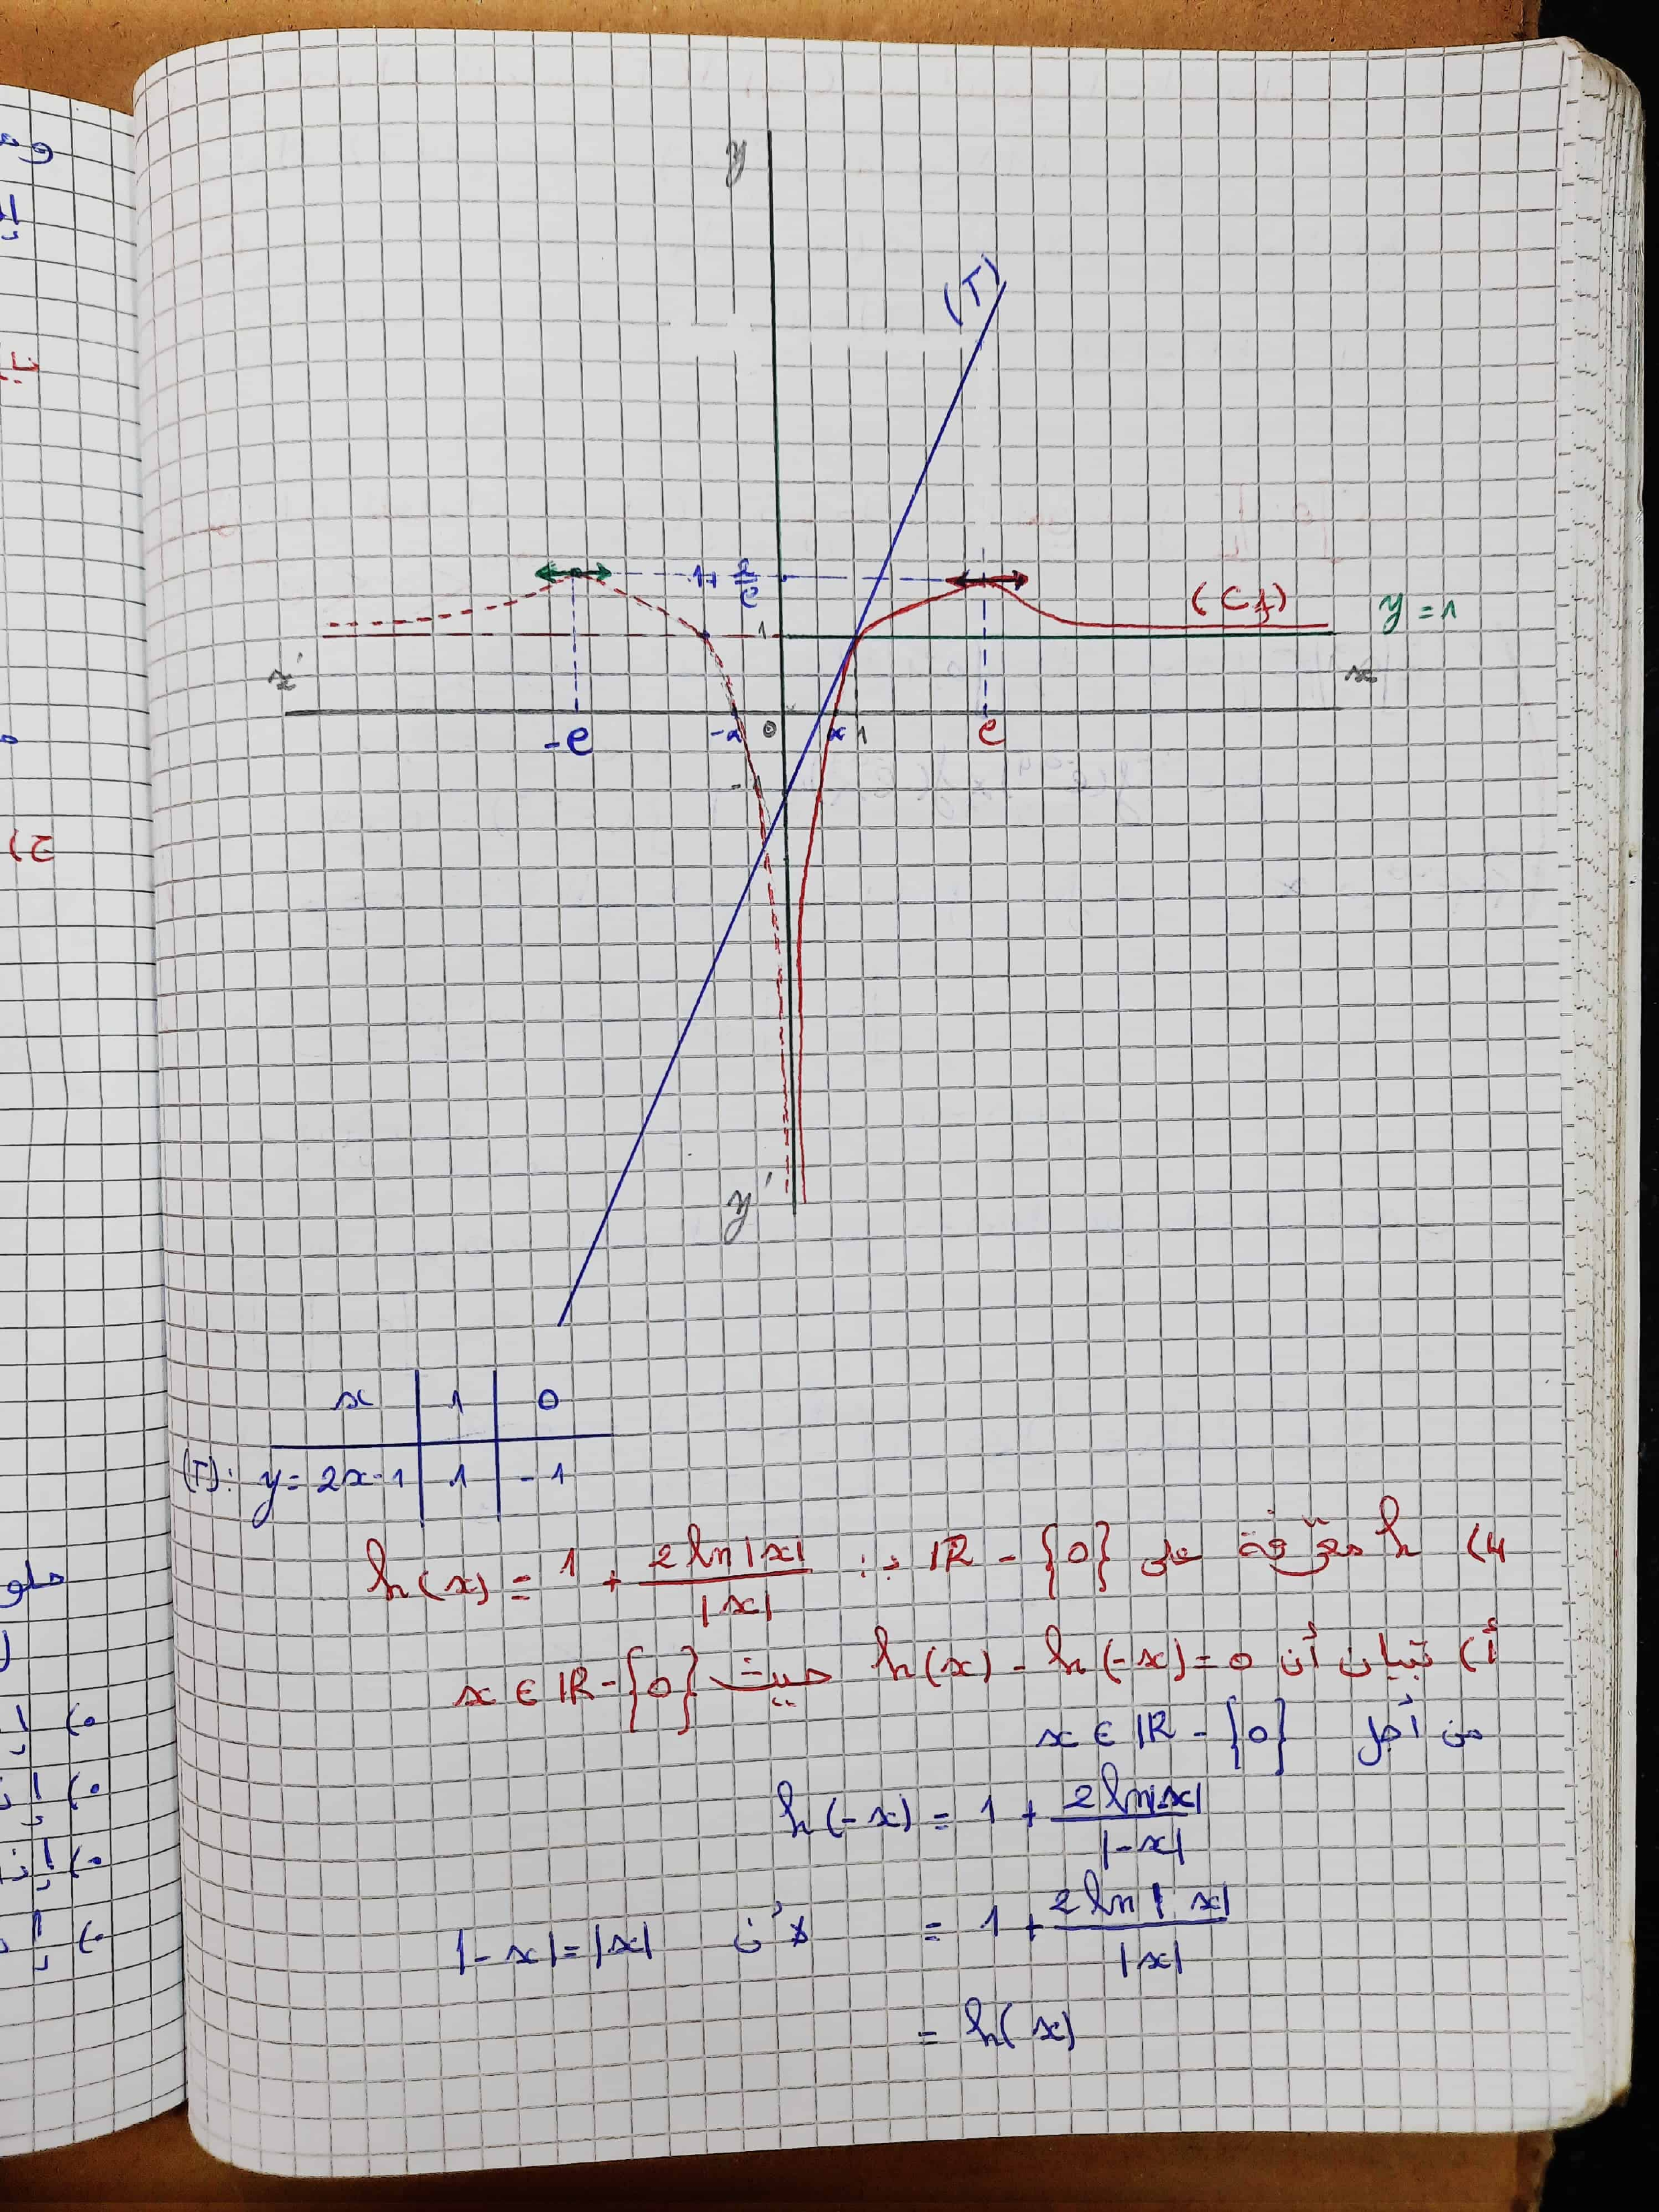 y
(T)
1+ 2/e
1
(C f)
y = 1
x'
x
-e
-α
0
α
1
e
y'
x | 1 | 0
(T): y = 2x-1 | 1 | -1
4) h معرّفة على IR - {0} بـ: h(x) = 1 + 2 ln|x| / |x|
أ) تبيان أن h(x) - h(-x) = 0 حيث x ∈ IR - {0}
من أجل x ∈ IR - {0}
h(-x) = 1 + 2 ln|-x| / |-x|
= 1 + 2 ln|x| / |x| لأن |-x| = |x|
= h(x)
ج)